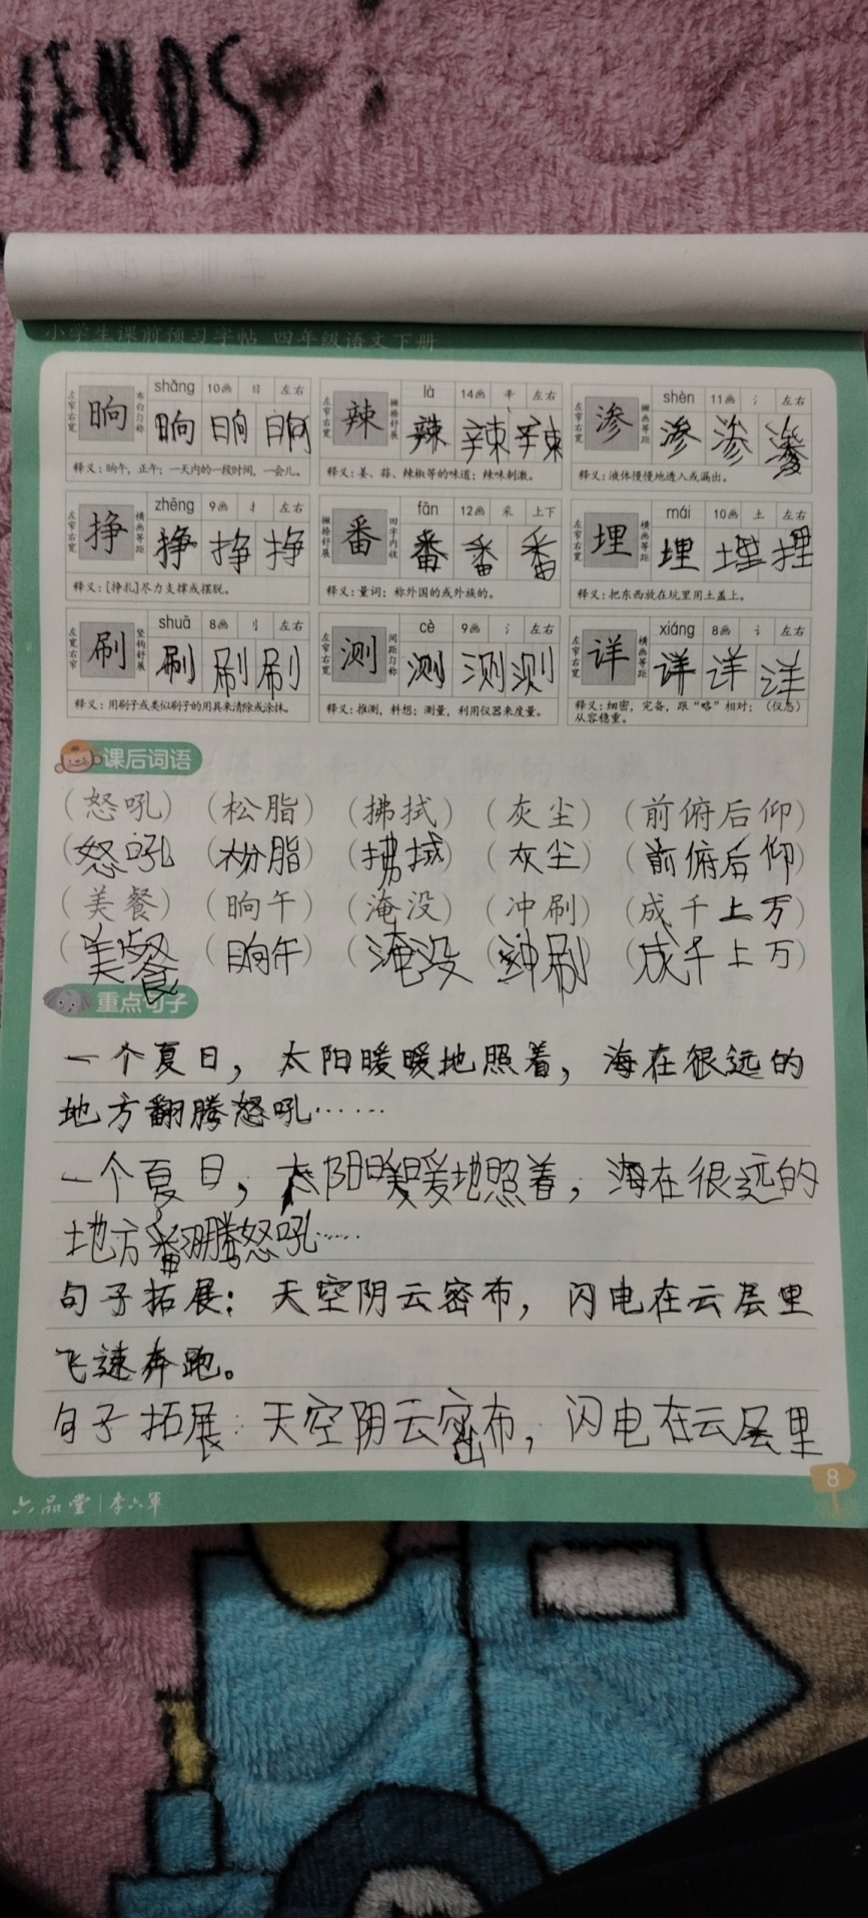 IENDS
小学生课前预习字帖 四年级语文下册
shǎng 10画 日 左右
là 14画 辛 左右
shèn 11画 氵 左右
左窄右宽 晌 布白匀称 晌 晌 晌
左窄右宽 辣 撇捺舒展 辣 辣 辣
左窄右宽 渗 撇画等距 渗 渗 渗
释义：晌午，正午；一天内的一段时间，一会儿。
释义：姜、蒜、辣椒等的味道；辣味刺激。
释义：液体慢慢地透入或漏出。
zhēng 9画 扌 左右
fān 12画 采 上下
mái 10画 土 左右
左窄右宽 挣 横画等距 挣 挣 挣
撇捺舒展 番 田字内收 番 番 番
左窄右宽 埋 横画等距 埋 埋 埋
释义：[挣扎]尽力支撑或摆脱。
释义：量词；称外国的或外族的。
释义：把东西放在坑里用土盖上。
shuā 8画 刂 左右
cè 9画 氵 左右
xiáng 8画 讠 左右
左宽右窄 刷 竖钩舒展 刷 刷 刷
左窄右宽 测 间距匀称 测 测 测
左窄右宽 详 横画等距 详 详 详
释义：用刷子或类似刷子的用具来清除或涂抹。
释义：推测，料想；测量，利用仪器来度量。
释义：细密，完备，跟“略”相对；（仪态）
从容稳重。
课后词语
（怒吼）（松脂）（拂拭）（灰尘）（前俯后仰）
（怒吼）（松脂）（拂拭）（灰尘）（前俯后仰）
（美餐）（晌午）（淹没）（冲刷）（成千上万）
（美餐）（晌午）（淹没）（冲刷）（成千上万）
重点句子
一个夏日，太阳暖暖地照着，海在很远的
地方翻腾怒吼……
一个夏日，太阳暖暖地照着，海在很远的
地方翻腾怒吼……
句子拓展：天空阴云密布，闪电在云层里
飞速奔跑。
句子拓展：天空阴云密布，闪电在云层里
8
六品堂|李六军